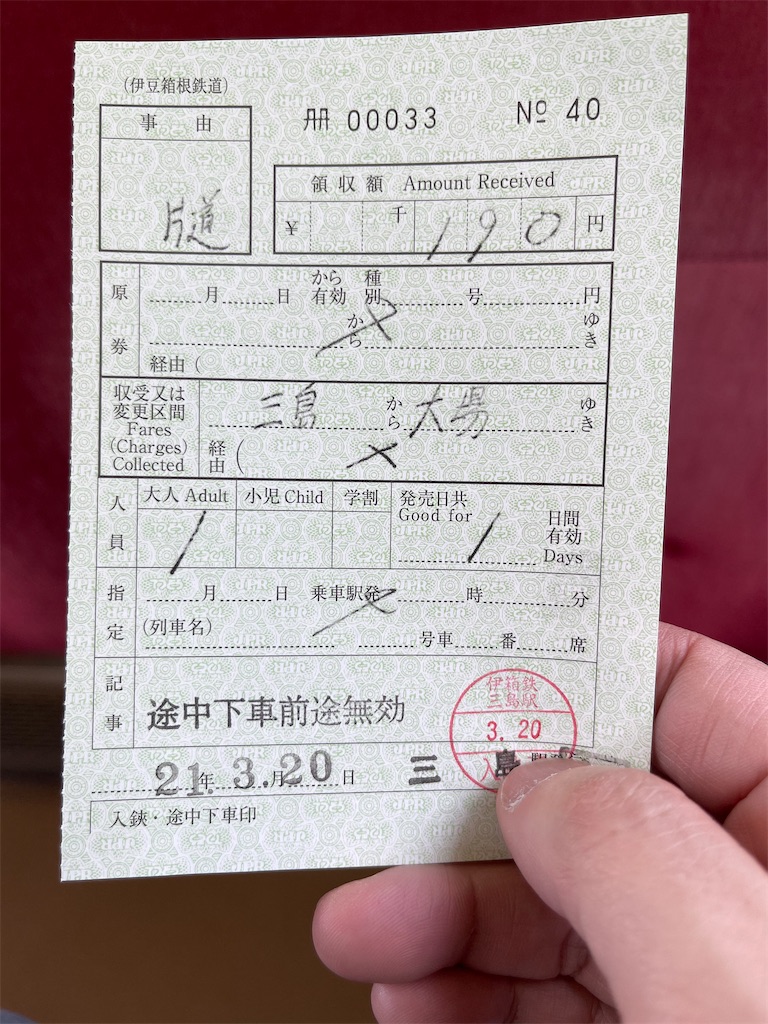 (伊豆箱根鉄道)
事 由
片道
冊 00033 № 40
領 収 額 Amount Received
¥ 千 190 円
原券
月 日 から有効 種別 号 円
から ゆき
経由(
収受又は
変更区間
Fares
(Charges)
Collected
三島 から 大場 ゆき
経由(
人員
大人 Adult 小児 Child 学割
1
発売日共
Good for 1 日間有効 Days
指定
月 日 乗車駅発 時 分
(列車名) 号車 番 席
記事
途中下車前途無効
伊箱鉄
三島駅
3. 20
入
21.年 3.月20日 三 島
入鋏・途中下車印